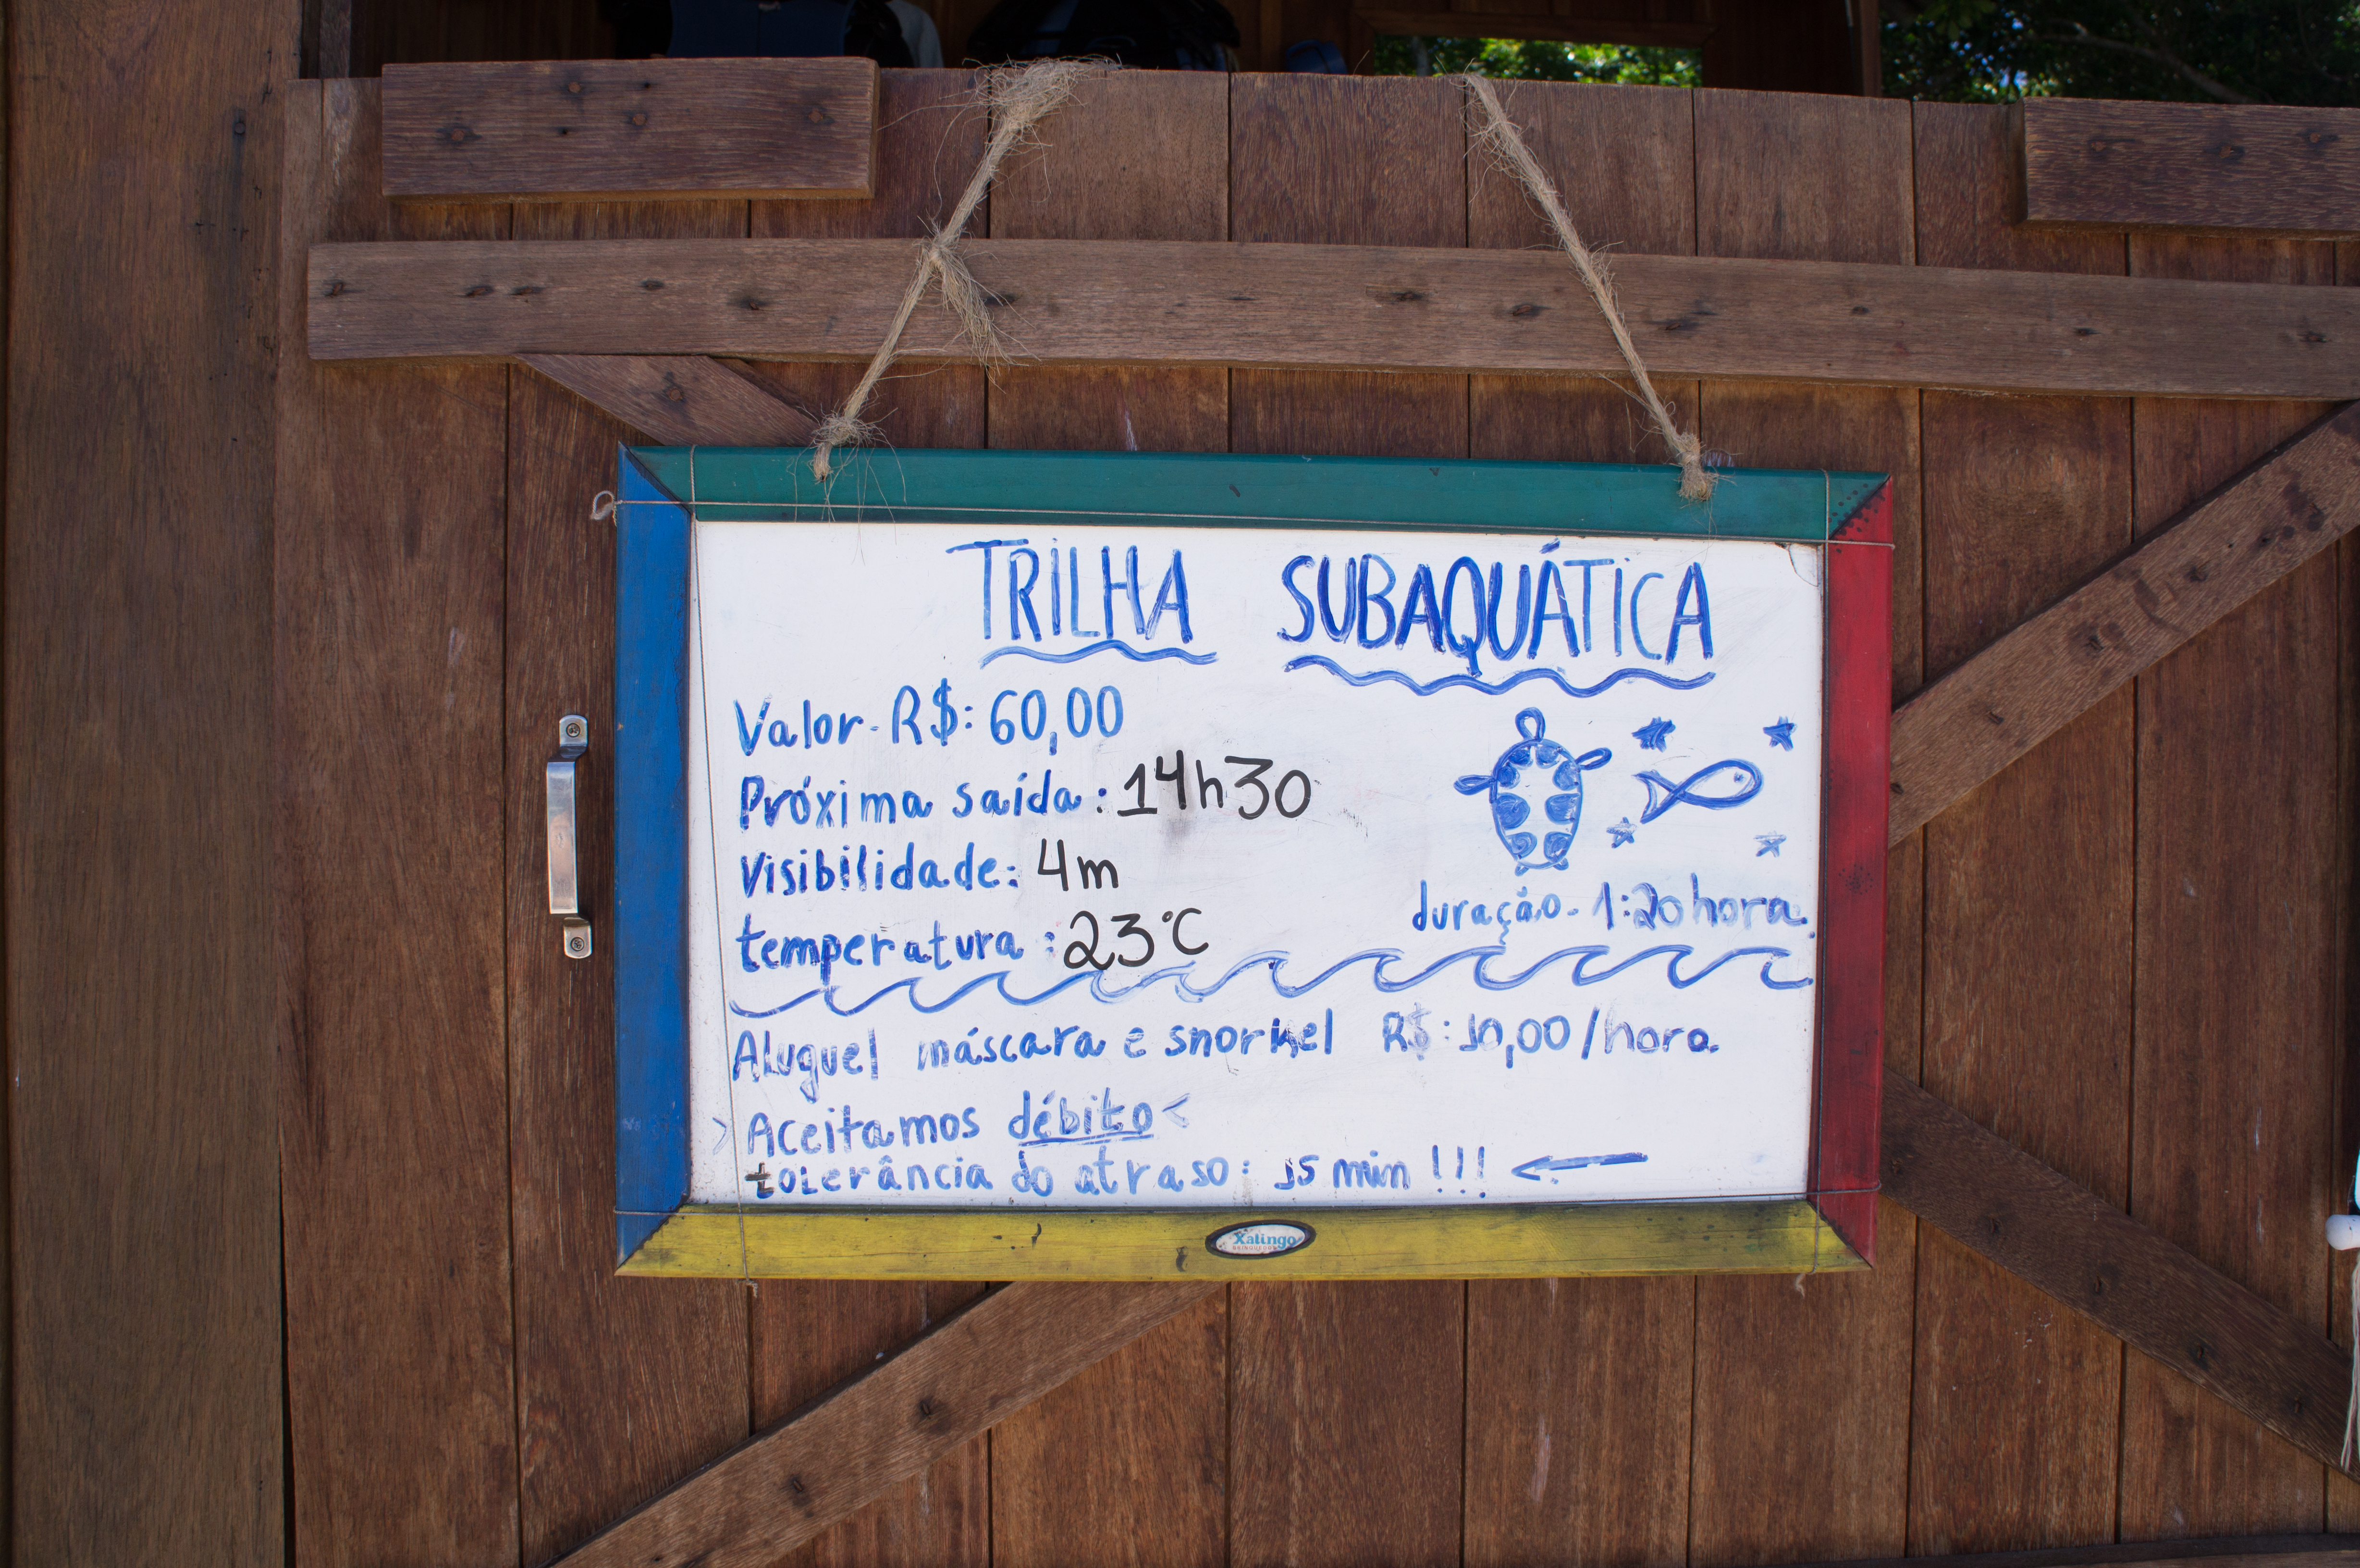 TRILHA SUBAQUÁTICA
Valor - R$: 60,00
Próxima saída: 14h30
Visibilidade: 4m
temperatura: 23°C
duração - 1:20 hora.
Aluguel máscara e snorkel R$: 10,00/hora.
> Aceitamos débito <
tolerância do atraso: 15 min !!! ←
Xalingo
BRINQUEDOS